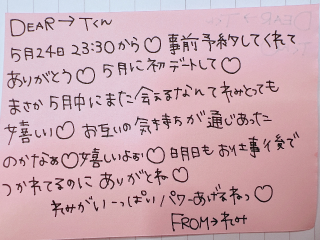 DEAR→Tくん
5月24日 23:30から♡ 事前予約してくれて
ありがとう♡ 5月に初デートして♡
まさか5月中にまた会えるなんてれみとっても
嬉しい♡ お互いの気持ちが通じあった
のかなぁ♡嬉しいよぉ♡ 日明日もお仕事後で
つかれてるのに ありがとね♡
れみがいーっぱいパワーあげるねっ♡
FROM→れみ